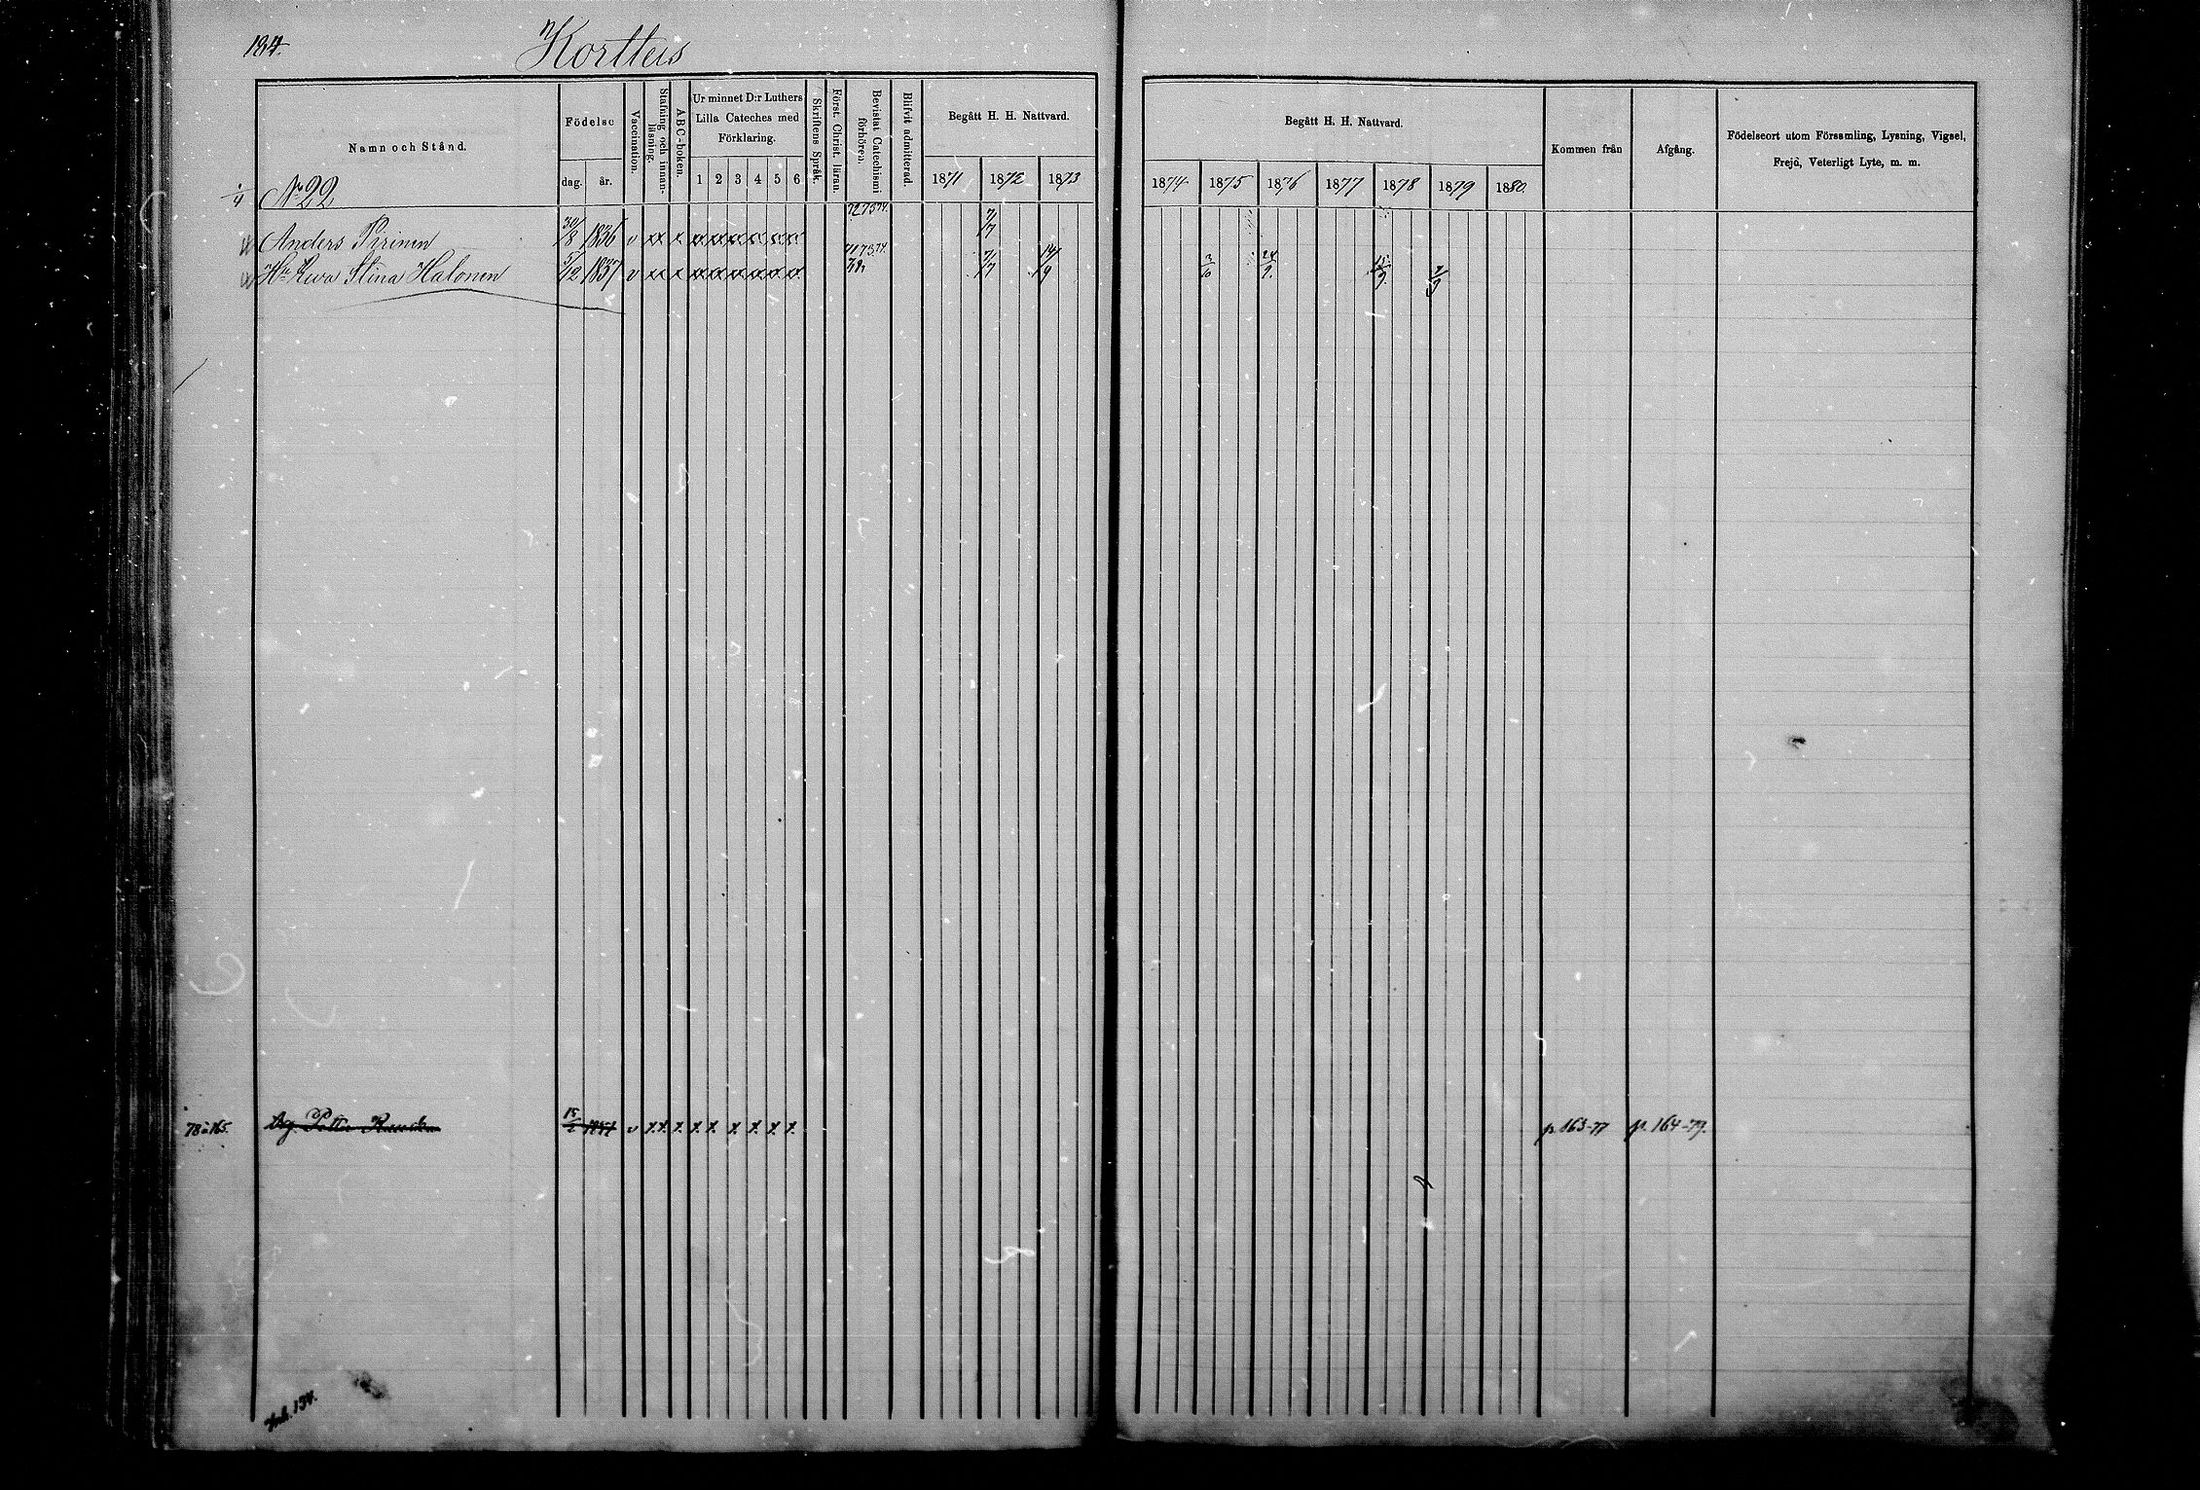 184.
Kortteus
Namn och Stånd.
Födelse
dag.
år.
Vaccination.
Stafning och innan-läsning.
ABC-boken.
Ur minnet D:r Luthers
Lilla Cateches med
Förklaring.
1 2 3 4 5 6
Skriftens Språk.
Först. Christ. läran.
Bevistat Catechismi förhören.
Blifvit admitterad.
Begått H. H. Nattvard.
1871 1872 1873
Begått H. H. Nattvard.
1874 1875 1876 1877 1878 1879 1880.
Kommen från
Afgång.
Födelseort utom Församling, Lysning, Vigsel,
Frejd, Veterligt Lyte, m. m.
No 22
Anders Pirinen 30/8 1836 v x x x x x x x x x 72 73 74. 7/7
Hu Ewa Stina Halonen 5/12 1837 v x x x x x x x x x 71 73 74. 7/7 14/9 3/10 24/9. 15/9. 7/9
78 à 165. Petter 15/2 v x x x x x x x x x p 163-77 p. 164-79.